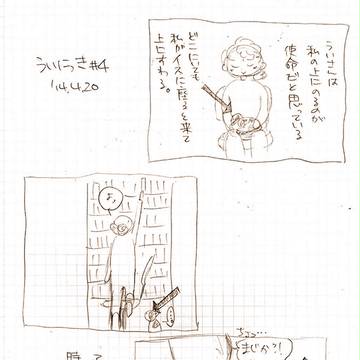 ういにっき#4
'14.4.20
ういさんは
私の上にのるのが
使命だと思っている
どこにいても
私がイスに座ると来て
上にすわる。
あっ
ちょっ…
まじか?!